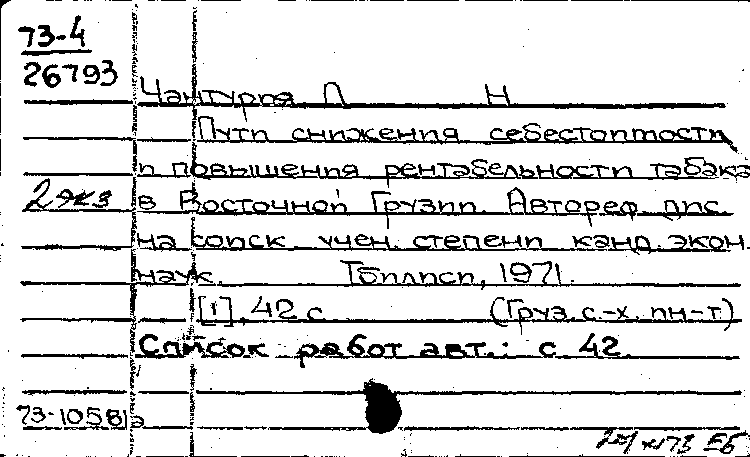 73-4
26793
Чантурия Л Н
Пути снижения себестоимости
и повышения рентабельности табака
2 экз в Восточной Грузии. Автореф. дис.
на соиск. учен. степени канд. экон.
наук. Тбилиси, 1971.
[1], 42 с. (Груз. с.-х. ин-т)
Список работ авт.: с. 42.
73-10581
73 ЕБ